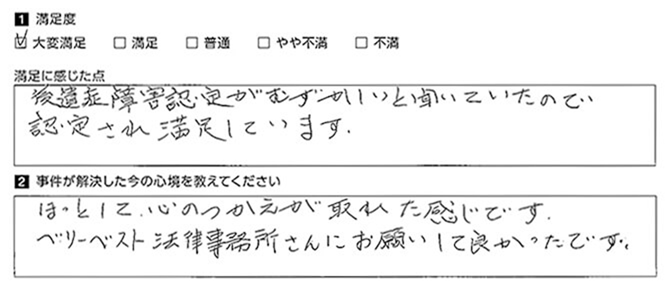 1 満足度
☑ 大変満足 □ 満足 □ 普通 □ やや不満 □ 不満
満足に感じた点
後遺症障害認定がむずかしいと聞いていたので
認定され満足しています.
2 事件が解決した今の心境を教えてください
ほっとして、心のつかえが取れた感じです.
ベリーベスト法律事務所さんにお願いして良かったです。